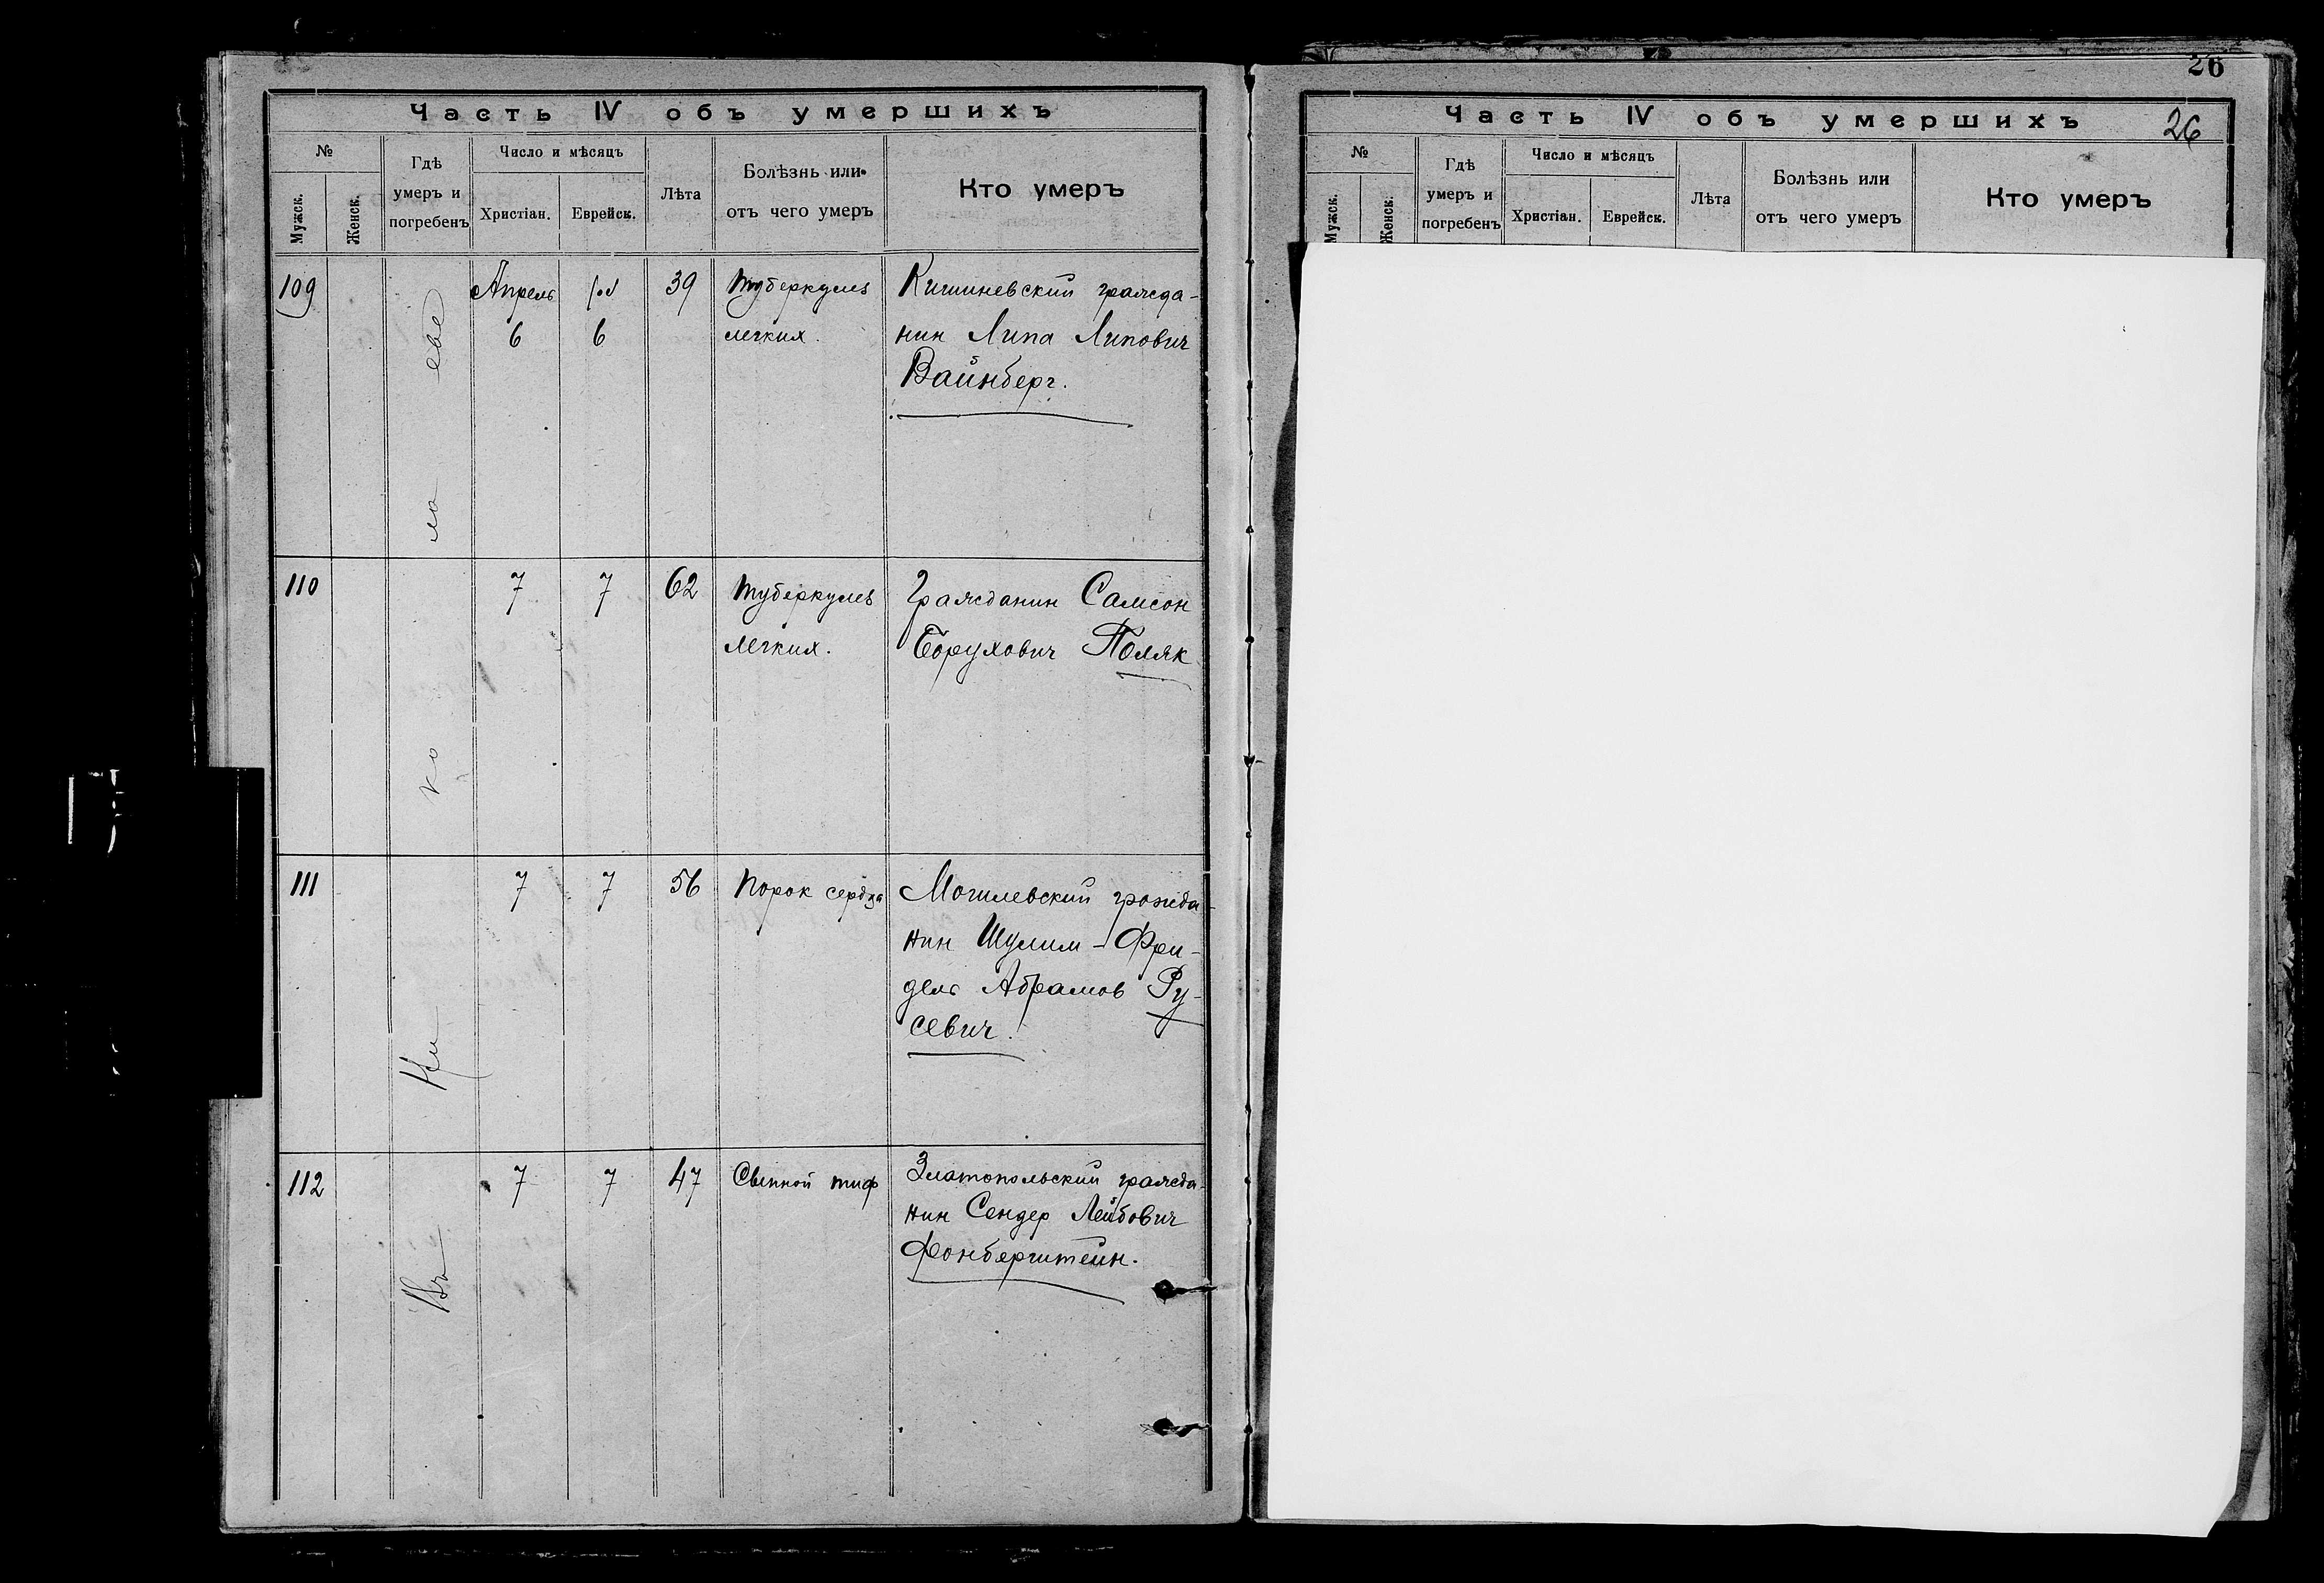 Часть IV объ умершихъ
№
Мужск.
Женск.
Гдѣ
умеръ и
погребенъ
Число и мѣсяцъ
Христіан.
Еврейск.
Лѣта
Болѣзнь или
отъ чего умеръ
Кто умеръ
109
Апрель
6
6
39
Туберкулез
легких.
Кишиневский гражда-
нин Липа Липович
Вайнберг.
110
7
7
62
Туберкулез
легких.
Гражданин Самсон
Борухович Поляк
111
7
7
56
Порок сердца
Могилевский гражда-
нин Шулим-Фри-
дель Абрамов Ру-
севич.
112
7
7
47
Сыпной тиф
Златопольский гражда-
нин Сендер Лейбович
Фонберштейн.
В г.
Ки
ло
еве
26
Часть IV объ умершихъ
26
№
Мужск.
Женск.
Гдѣ
умеръ и
погребенъ
Число и мѣсяцъ
Христіан.
Еврейск.
Лѣта
Болѣзнь или
отъ чего умеръ
Кто умеръ